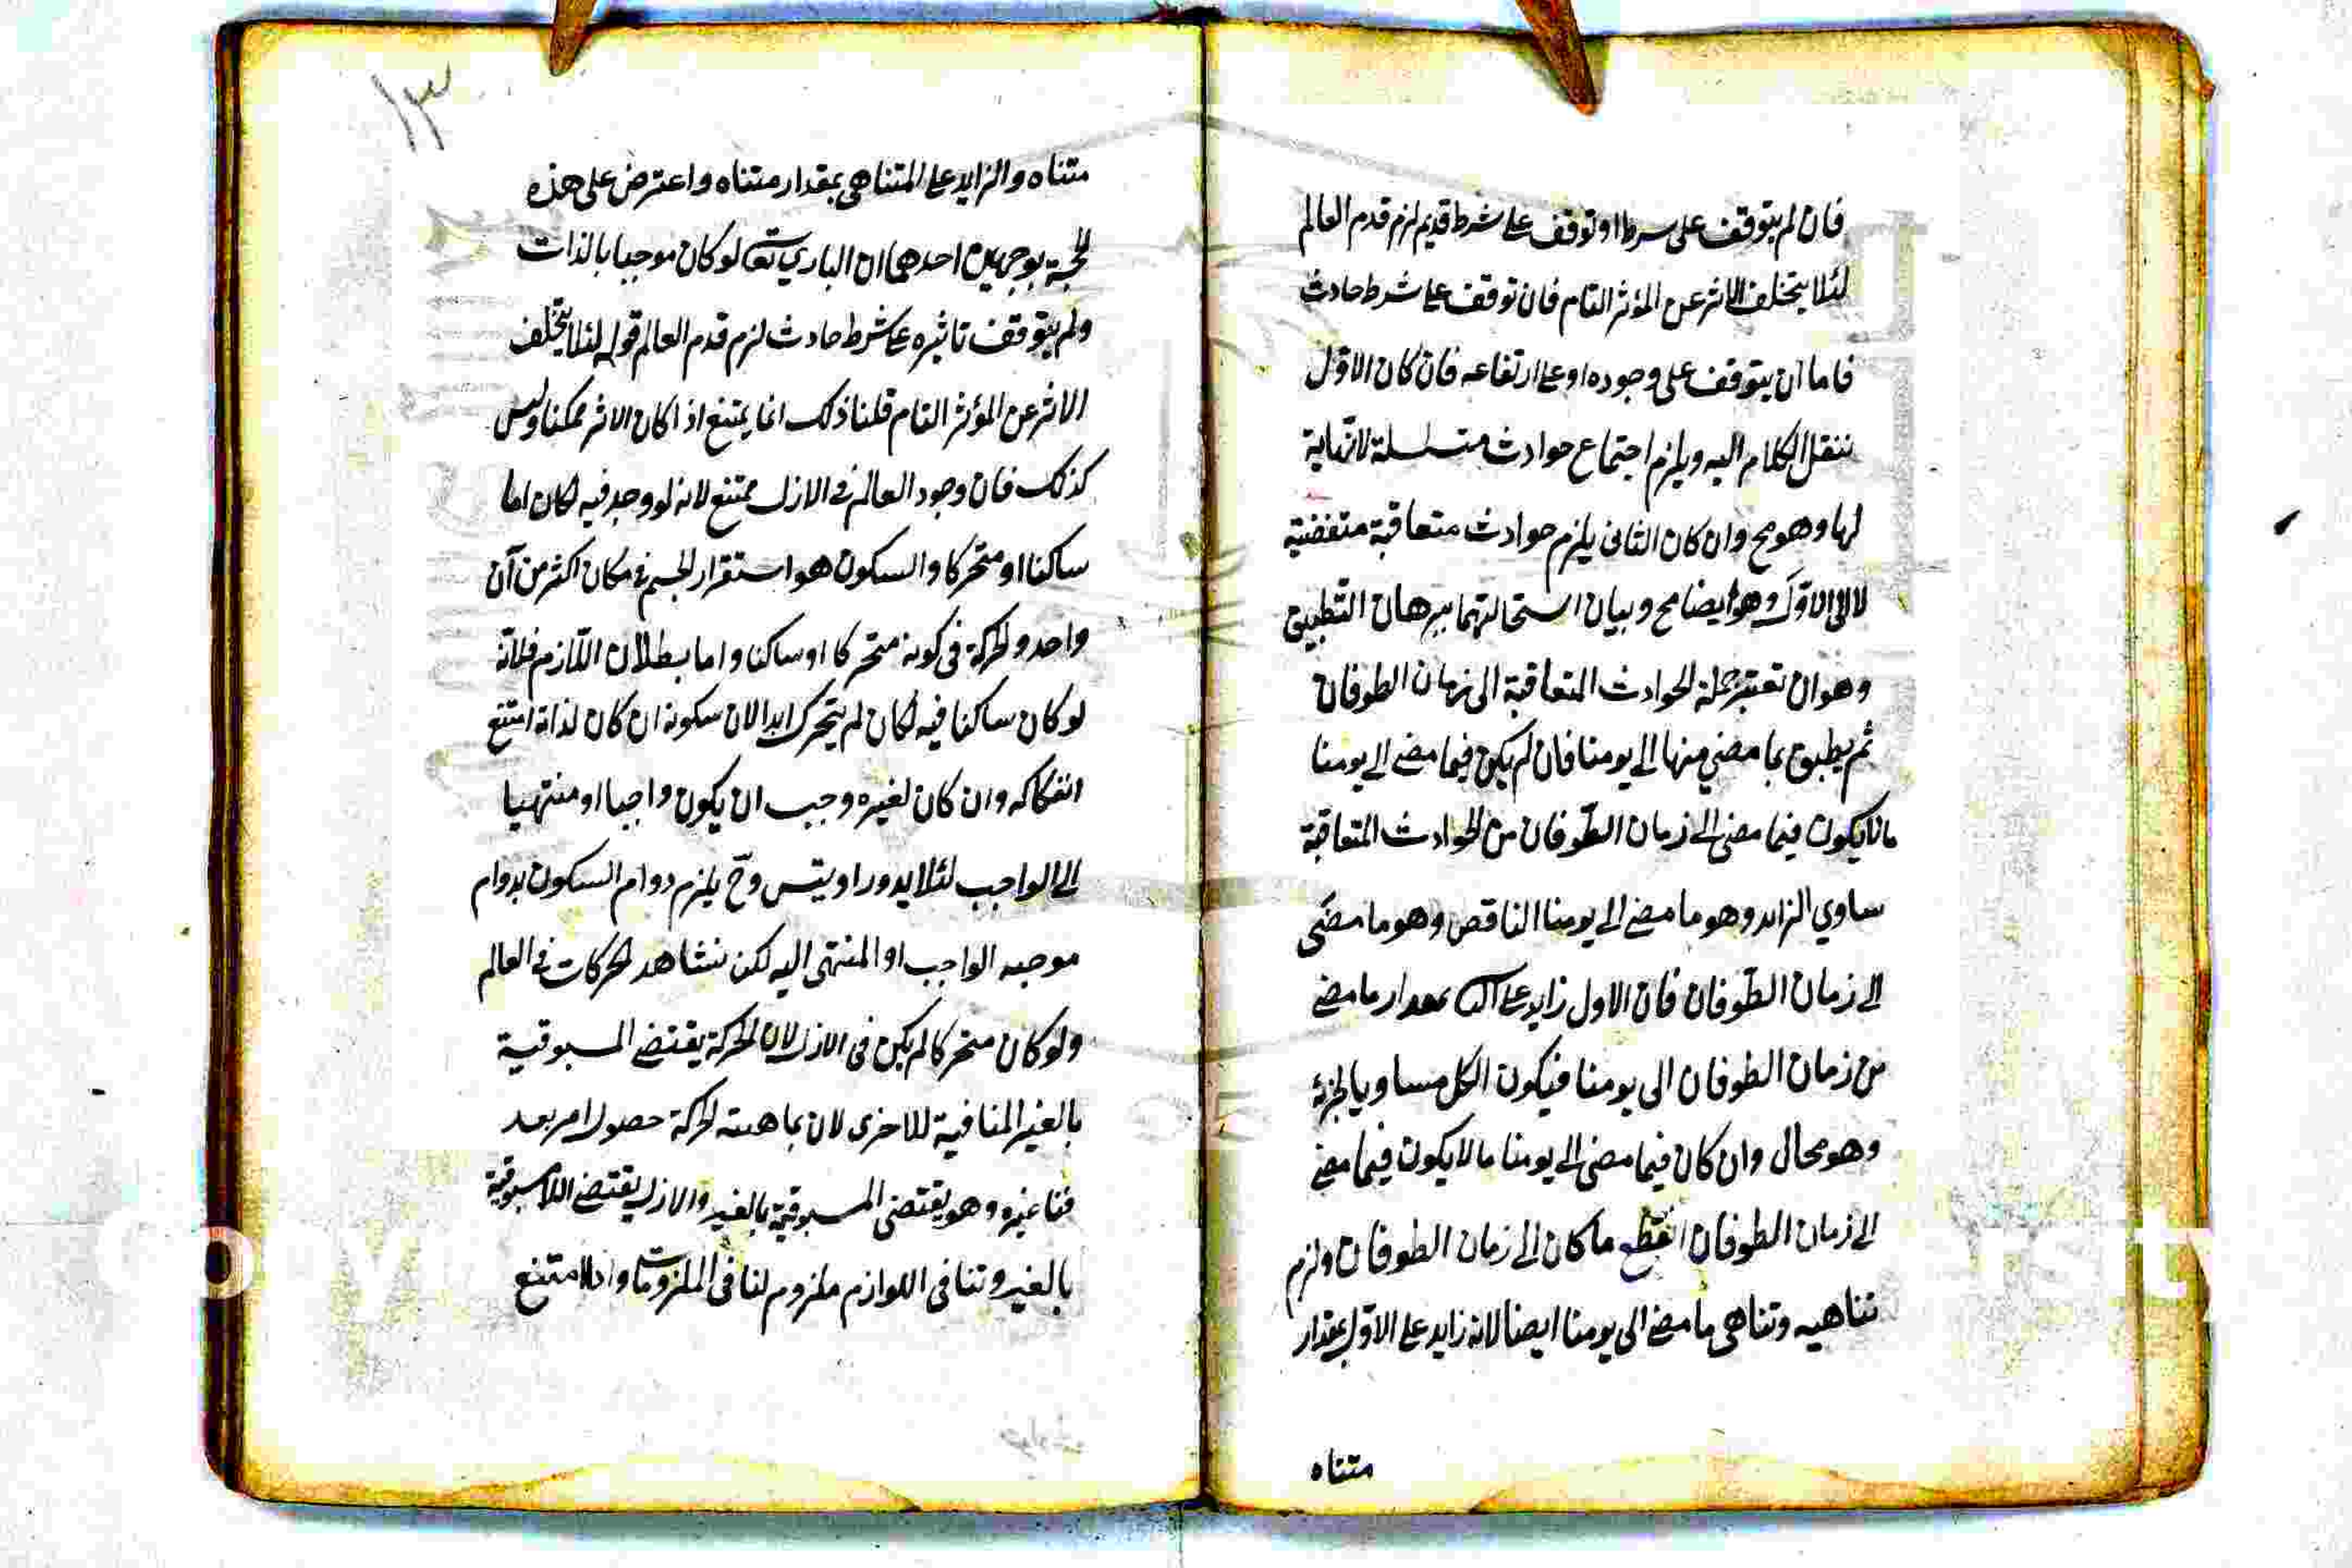 فان لم يتوقف على سرط او توقف على شرط قديم لزم قدم العالم
لئلا يتخلف الاثر عن المؤثر التام فان توقف على شرط حادث
فاما ان يتوقف على وجوده او على ارتفاعه فان كان الاول
ننقل الكلام اليه ويلزم اجتماع حوادث متسلسلة لا نهاية
لها وهو مح وان كان الثانى يلزم حوادث متعاقبة متقضية
لا الى الاول وهو ايضا مح وبيان استحالتهما ببرهان التطبيق
وهو ان تعتبر جملة الحوادث المتعاقبة الى زمان الطوفان
ثم يطبق بما مضى منها الى يومنا فان لم يكن فيما مضى الى يومنا
مالا يكون فيما مضى الى زمان الطوفان من الحوادث المتعاقبة
ساوي الزايد وهو ما مضى الى يومنا الناقص وهو ما مضى
الى زمان الطوفان فان الاول زايد على بمقدار ما مضى
من زمان الطوفان الى يومنا فيكون الكل مساويا لجزئه
وهو محال وان كان فيما مضى الى يومنا مالا يكون فيما مضى
الى زمان الطوفان انقطع ما كان الى زمان الطوفان ولزم
تناهيه وتناهى ما مضى الى يومنا ايضا لانه زايد على الاول بمقدار
متناه
١٣
متناه والزايد على المتناهى بمقدار متناه واعترض على هذه
الحجة بوجهين احدهما ان الباري تعالى لو كان موجبا بالذات
ولم يتوقف تاثيره على شرط حادث لزم قدم العالم قوله لئلا يتخلف
الاثر عن المؤثر التام قلنا ذلك انما يمتنع اذا كان الاثر ممكنا وليس
كذلك فان وجود العالم فى الازل ممتنع لانه لو وجد فيه لكان اما
ساكنا او متحركا والسكون هو استقرار الجسم فى مكان اكثر من آن
واحد والحركة فى كونه متحركا او ساكنا واما بطلان اللازم فلانه
لو كان ساكنا فيه لكان لم يتحرك ابدا لان سكونه ان كان لذاته امتنع
انفكاكه وان كان لغيره وجب ان يكون واجبا او منتهيا
الى الواجب لئلا يدور او يتس وح يلزم دوام السكون بدوام
موجبه الواجب او المنتهى اليه لكن نشاهد الحركات فى العالم
ولو كان متحركا لم يكن فى الازل لان الحركة يقتضى المسبوقية
بالغير المنافية للاخرى لان ماهية الحركة حصول امر بعد
فنا غيره وهو يقتضى المسبوقية بالغير والازل يقتضى اللامسبوقية
بالغير وتنافى اللوازم ملزوم لتنافى الملزومات امتنع